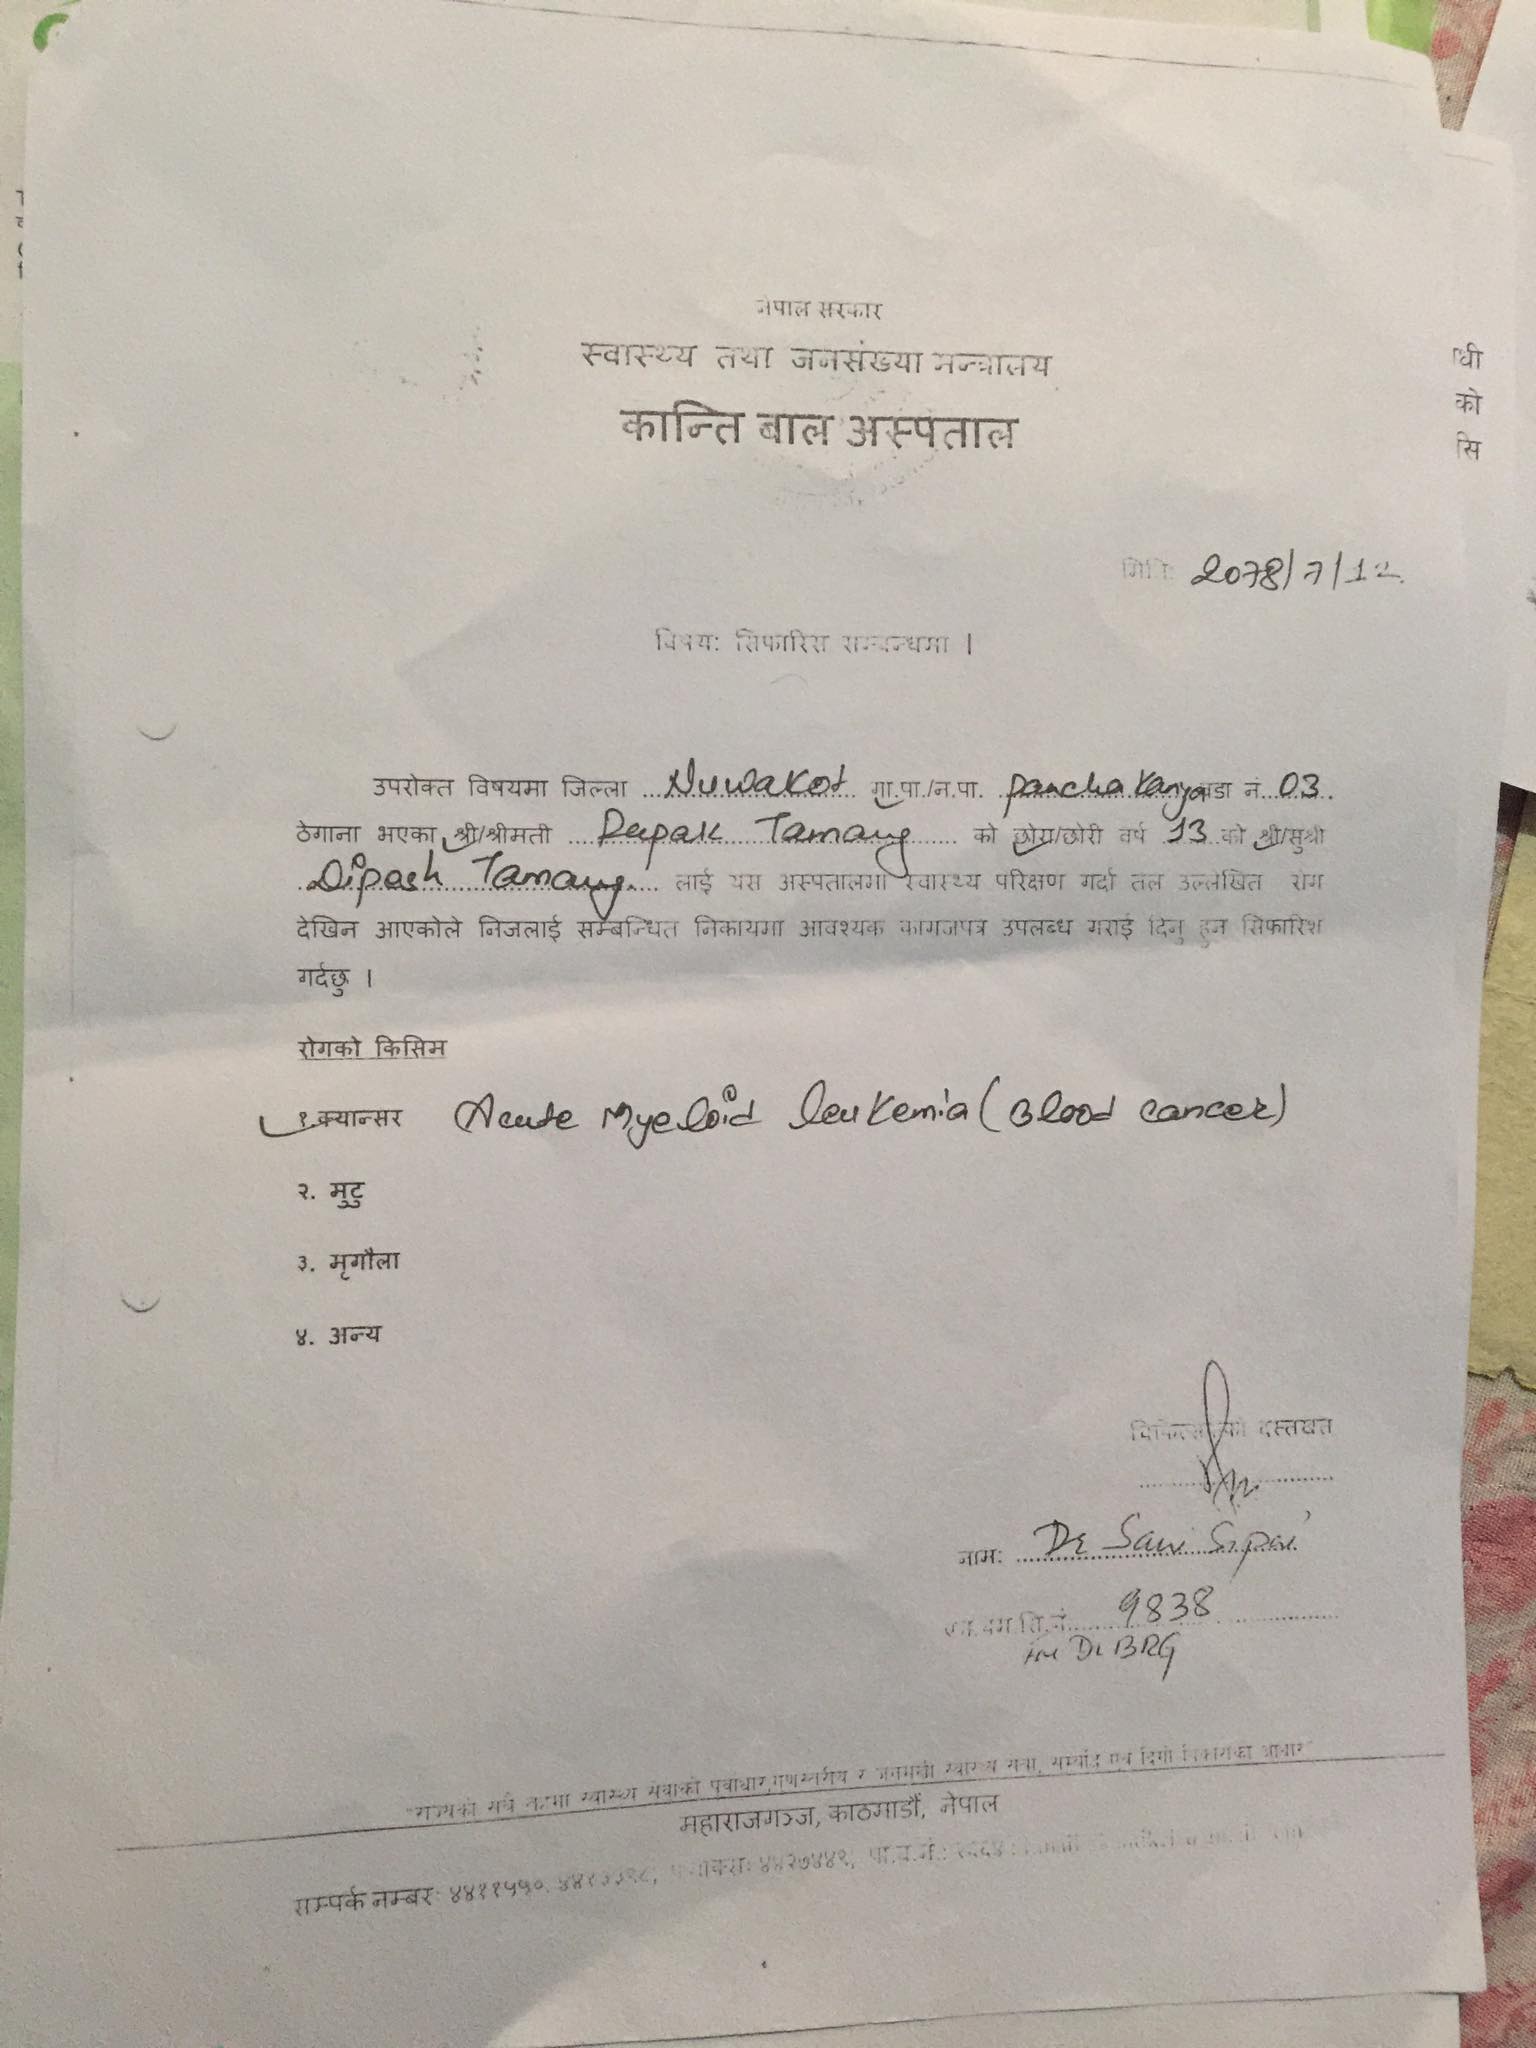 नेपाल सरकार
स्वास्थ्य तथा जनसंख्या मन्त्रालय
कान्ति बाल अस्पताल
मिति: 2078/7/12
विषय: सिफारिस सम्बन्धमा ।
उपरोक्त विषयमा जिल्ला Nuwakot गा.पा./न.पा. panchakanya वडा नं. 03
ठेगाना भएका श्री/श्रीमती Deepak Tamang को छोरा/छोरी वर्ष 13 को श्री/सुश्री
Dipesh Tamang लाई यस अस्पतालमा स्वास्थ्य परिक्षण गर्दा तल उल्लेखित रोग
देखिन आएकोले निजलाई सम्बन्धित निकायमा आवश्यक कागजपत्र उपलब्ध गराई दिनु हुन सिफारिश
गर्दछु ।
रोगको किसिम
१. क्यान्सर Acute Myeloid leukemia (Blood cancer)
२. मुटु
३. मृगौला
४. अन्य
चिकित्सकको दस्तखत
नाम: Dr
9838
Dr BRG
महाराजगञ्ज, काठमाडौं, नेपाल
सम्पर्क नम्बर: ४४११५५०
धी
को
सि